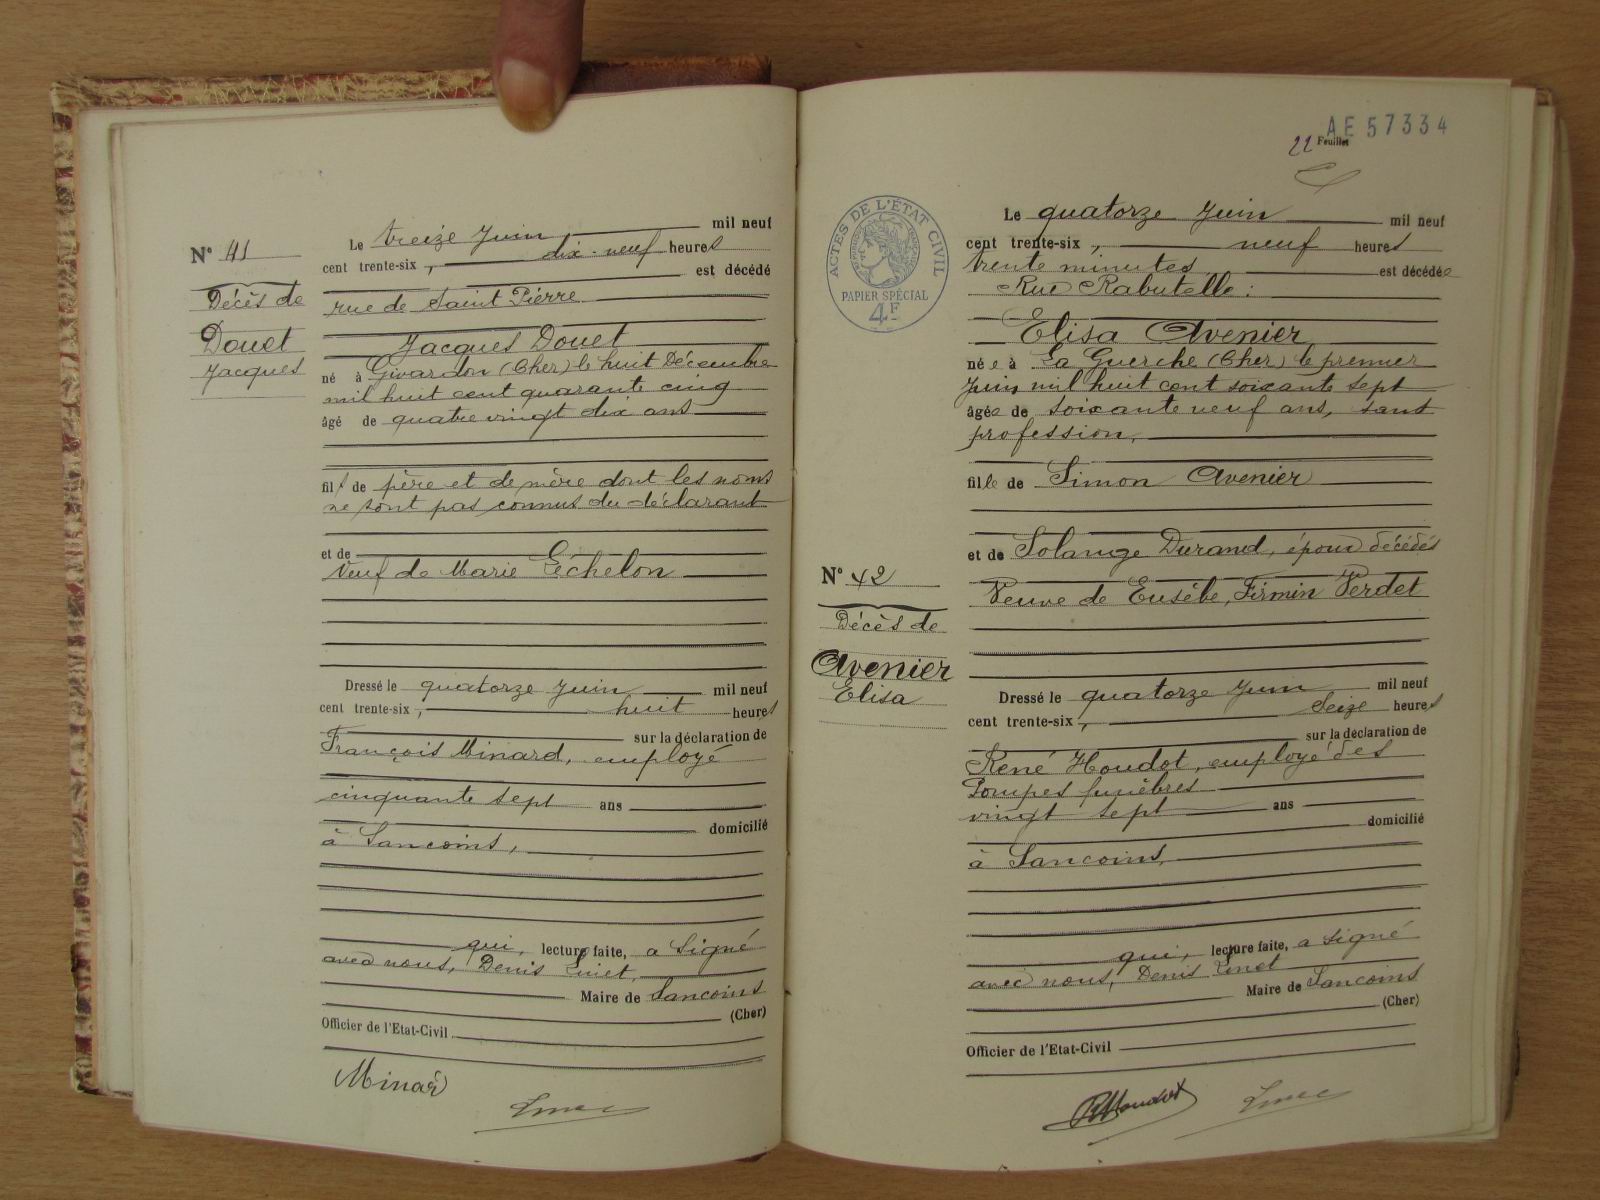 N° 41
Décès de
Douet
Jacques
Le treize Juin mil neuf
cent trente-six, dix-neuf heures
est décédé
rue de Saint Pierre
Jacques Douet
né à Givardon (Cher) le huit Décembre
mil huit cent quarante cinq
âgé de quatre vingt dix ans
fils de père et de mère dont les noms
ne sont pas connus du déclarant
et de
Veuf de Marie Echelon
Dressé le quatorze Juin mil neuf
cent trente-six, huit heures
sur la déclaration de
François Minard, employé
cinquante sept ans
domicilié
à Sancoins,
qui, lecture faite, a signé
avec nous, Denis
Maire de Sancoins
(Cher)
Officier de l'Etat-Civil
Minar
AE 57334
22 Feuillet
ACTES DE L'ÉTAT CIVIL
PAPIER SPÉCIAL
4F
N° 42
Décès de
Avenier
Elisa
Le quatorze Juin mil neuf
cent trente-six, neuf heures
trente minutes, est décédée
Rue Rabutelle :
Elisa Avenier
née à La Guerche (Cher) le premier
Juin mil huit cent soixante sept
âgée de soixante neuf ans, sans
profession,
fille de Simon Avenier
et de Solange Durand, époux décédés
Veuve de Eusèbe, Firmin Verdet
Dressé le quatorze Juin mil neuf
cent trente-six, seize heures
sur la déclaration de
René Houdot, employé des
Pompes funèbres
vingt sept ans
domicilié
à Sancoins,
qui, lecture faite, a signé
avec nous, Denis
Maire de Sancoins
(Cher)
Officier de l'Etat-Civil
RHoudot